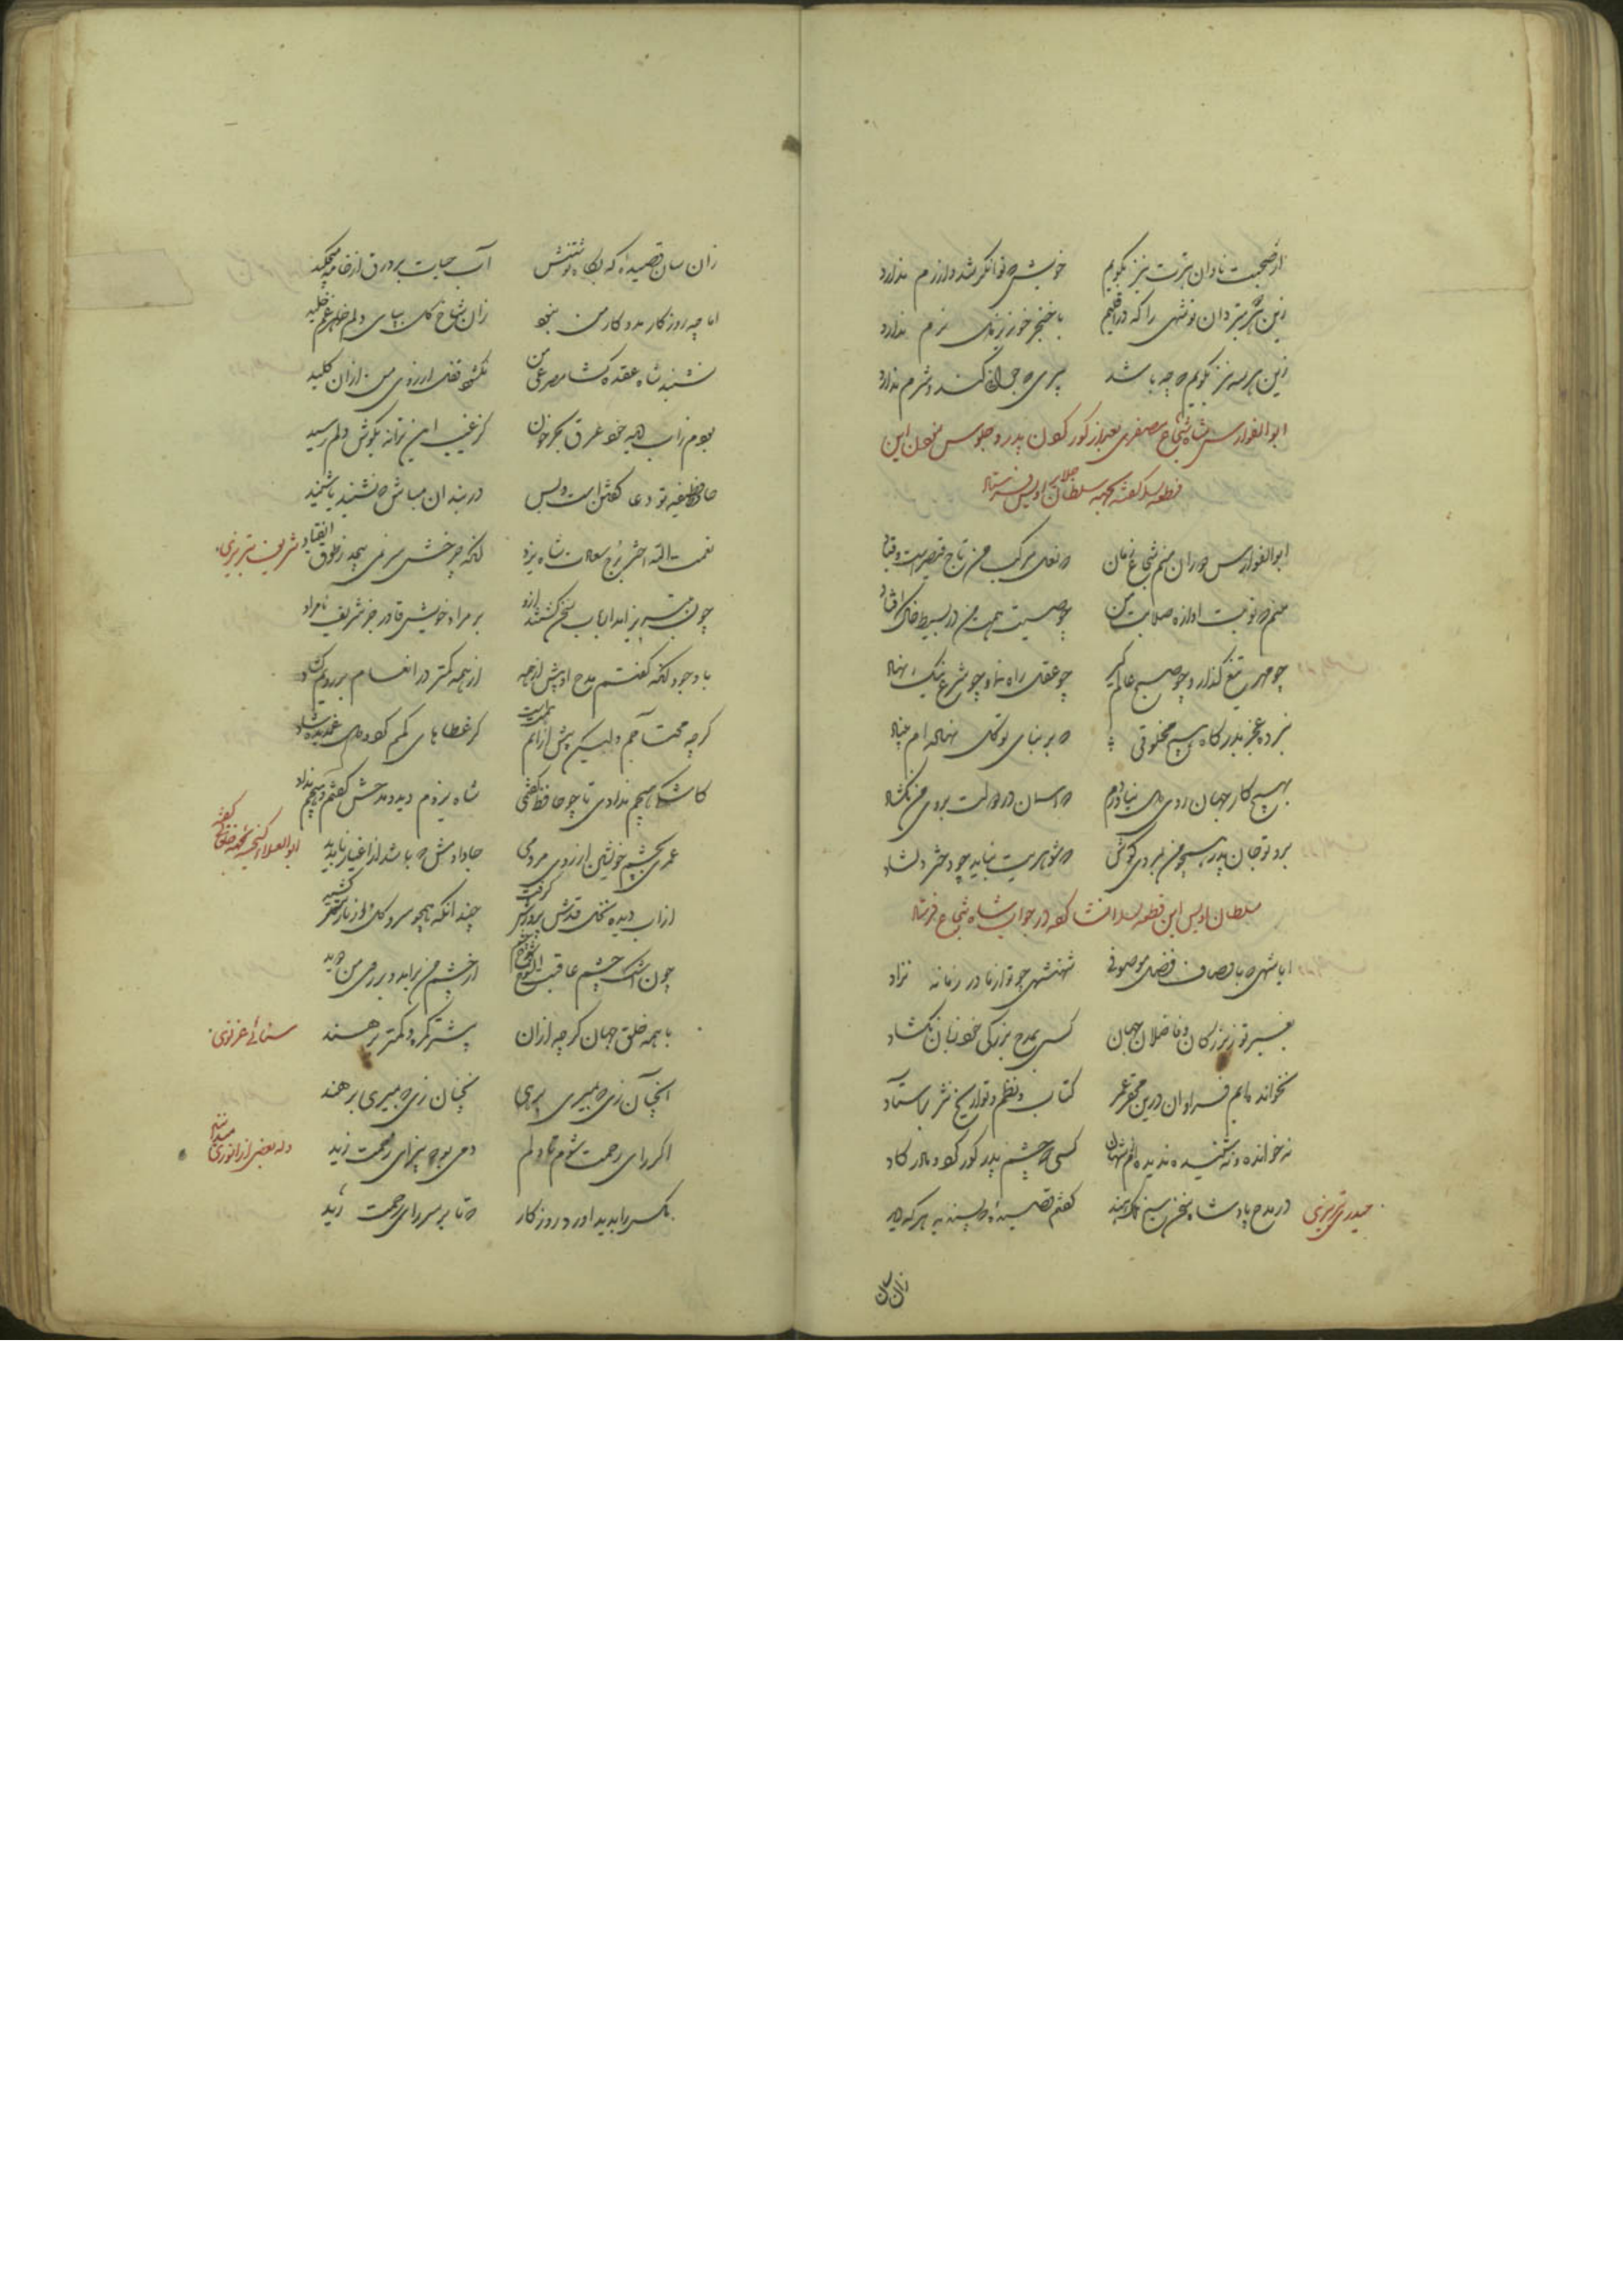 از صحبت نادان بترت نیز بگویم خویشی که توانگر شد و آزرم ندارد
زین هر دو بتر دان تو شهی را که در اقلیم با خنجر خونریز دل نرم ندارد
زین هر سه بتر نیز بگویم که چه باشد پیری که جوانی کند و شرم ندارد
ابو الفوارس شاه شجاع مظفری بعد از کور کردن پدر و جلوس خود این
قطعه را گفته بجهة سلطان اویس فرستاد
ابو الفوارس دوران منم شجاع زمان که نعل مرکب من تاج قیصرست و قباد
منم که نوبت اوازه صلابت من چو صیت همت من در بسیط خاک افتاد
چو مهر تیغ گذار و چو صبح عالم گیر چو عقل راه نما و چو شرع نیک نهاد
نبرده عجز بدرگاه هیچ مخلوقی که بر بنای توکل نهاده ام بنیاد
بهیچ کار جهان روی دل نیاوردم که اسمان در دولت بروی من نگشاد
برو تو جان پدر همچو من بمردی کوش که شوهریت نیاید چو دختر دلشاد
سلطان اویس این قطعه را انشا کرده در جواب شاه شجاع فرستاد
ایا شهی که باوصاف فضل موصوفی شهنشهی چو تو از مادر زمانه نزاد
بغیر تو ز بزرگان و فاضلان جهان کسی بمدح بزرگی خود زبان نگشاد
بخوانده ایم فراوان درین مختصر عمر کتاب نظم و تواریخ نثر از استاد
نه خوانده و نه شنیده ندیده ام شهان کسی که چشم پدر کور کرد و مادر گاد
حیدری تبریزی
در مدح پادشاه سخن سنج گفتم قصیده که پسندید هر که دید
زان سان
زان سان قصیده که بگاه نوشتنش آب حیات بر ورق از خامه میچکید
اما چه روزگار مددکار من نبود زان شاخ گل بپای دلم خار غم خلید
نشنید شاه عقده گشا مصرعی ز من نگشود قفل ارزوی من ازان کلید
بودم ز آب دیده خود غرق بحر خون کز غیب این ترانه بگوش دلم رسید
حافظ وظیفه تو دعا گفتن است و بس در بند ان مباش که نشنید یا شنید
شریف تبریزی
نعمت الله اختر برج سعادت شاه یزد انکه چرخش سر نمی پیچد ز طوق انقیاد
چون به تبریز آمد ارباب سخن گشتند ازو بر مراد خویش قادر جز شریف نامراد
با وجود انکه گفتم مدح او پیش از همه از همه کمتر در انعام بر رویم گشاد
گرچه محتاجم ولیکن پیش ازانم همت است کز عطاهای کم گردد دل غمدیده شاد
کاشکی هیچم ندادی تا چو حافظ گفتمی شاه یزدم دید و مدحش گفتم و هیچم نداد
ابو العلاء گنجه بجهة خاقانی گفته
عمری بچشم خویشتن از روی مردمی جا دادمش که باشد از اغیار ناپدید
از اب دیده نخل قدش پرورش گرفت چندانکه همچو سرو گل از ناز سر کشید
چون اشک چشم عاقبت ان شوخ از چشم من برامد و بر روی من دوید
سنائی غزنوی
با همه خلق جهان گرچه ازان بیشتر گمره و کمتر برهند
انچنان زی که بمیری برهی نچنان زی که بمیری برهند